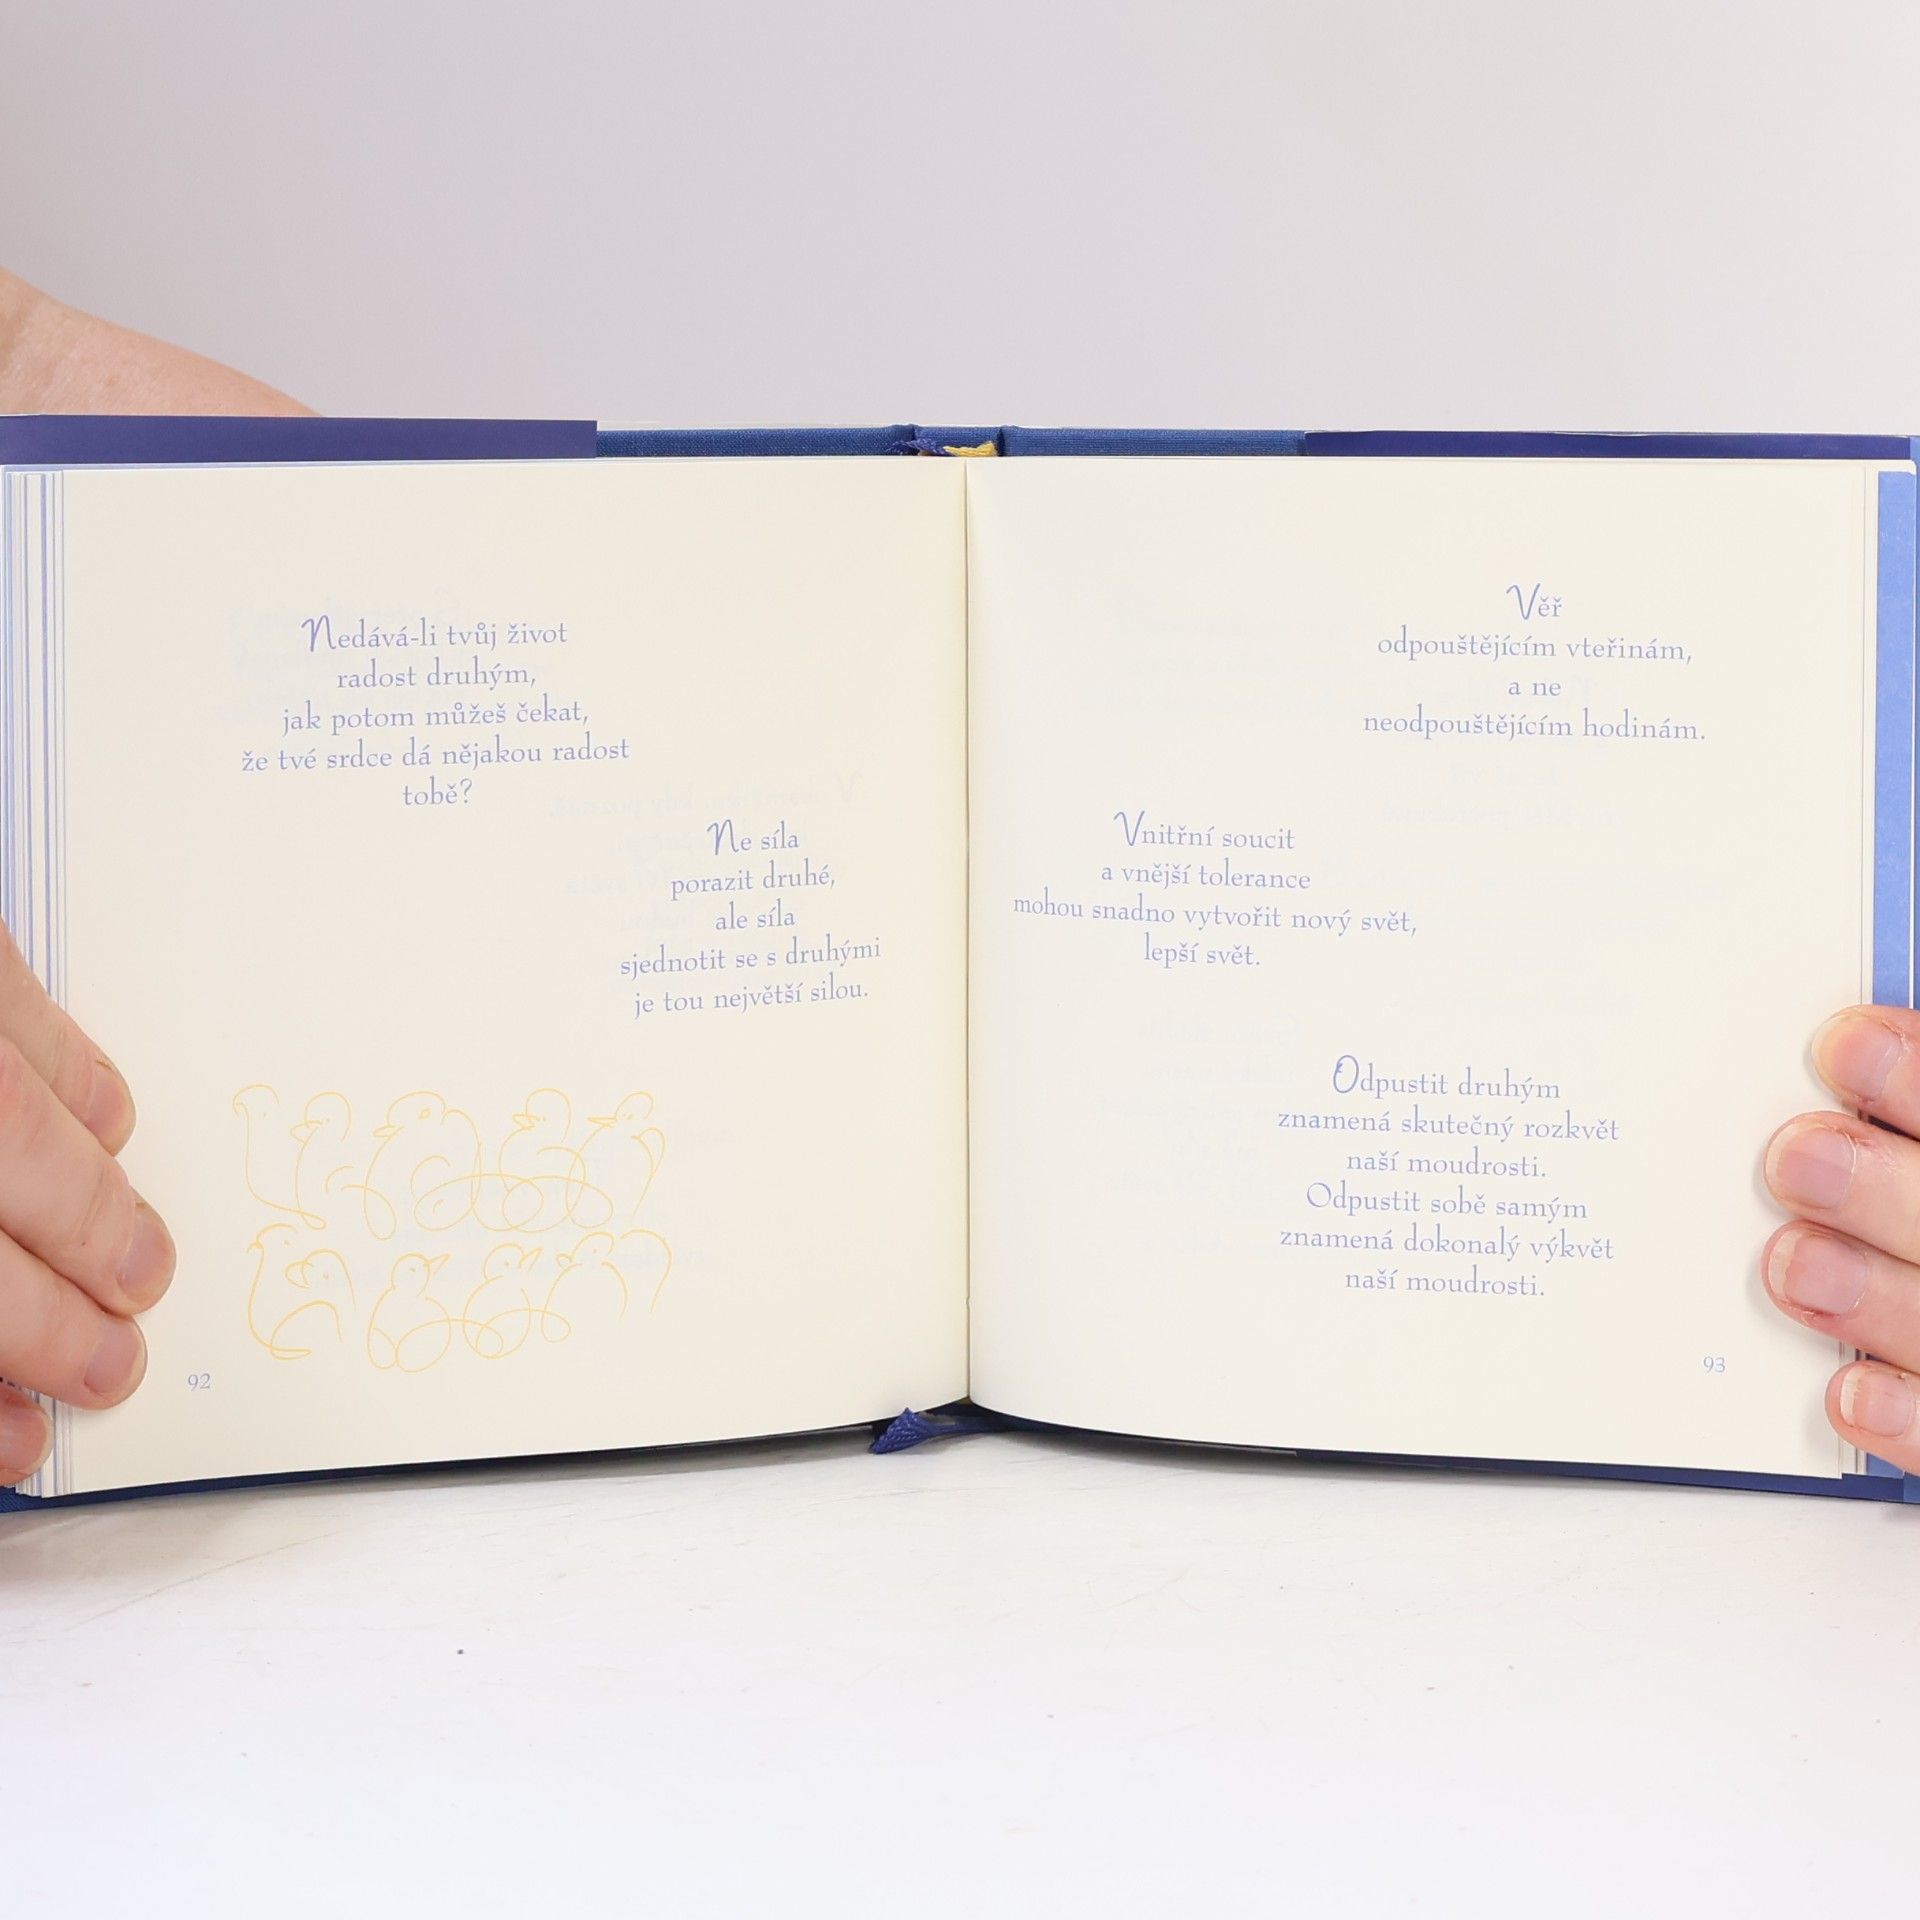 Nedává-li tvůj život
radost druhým,
jak potom můžeš čekat,
že tvé srdce dá nějakou radost
tobě?
Ne síla
porazit druhé,
ale síla
sjednotit se s druhými
je tou největší silou.
92
Věř
odpouštějícím vteřinám,
a ne
neodpouštějícím hodinám.
Vnitřní soucit
a vnější tolerance
mohou snadno vytvořit nový svět,
lepší svět.
Odpustit druhým
znamená skutečný rozkvět
naší moudrosti.
Odpustit sobě samým
znamená dokonalý výkvět
naší moudrosti.
93